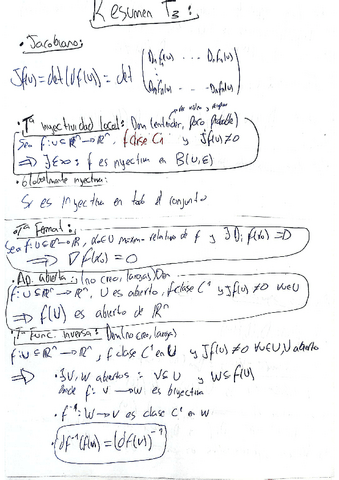 Resumen T3:
• Jacobiano:
Jf(u) = det(df(u)) = det ( D₁f₁(u) ... Dₙf₁(u)
D₁fₙ(u) ... Dₙfₙ(u) )
• Tª inyectividad local: Dem (entender, poco probable)
Sea f: U ⊆ ℝⁿ → ℝⁿ, f clase C¹ y Jf(u) ≠ 0
⇒ ∃ε>0: f es inyectiva en B(u,ε)
• Globalmente inyectiva:
Si es inyectiva en todo el conjunto
• Tª Fermat:
Sea f: U ⊆ ℝⁿ → ℝ, máximo relativo de f y ∃Dᵢ f(x₀) ⇒
⇒ ∇f(x₀) = 0
• Ap. abierta: (no creo, larga) Dem
f: U ⊆ ℝⁿ → ℝⁿ, U es abierto, f clase C¹ y Jf(u) ≠ 0 ∀u∈U
⇒ f(U) es abierto de ℝⁿ
• Tª Func. inversa: Dem (no creo, larga)
f: U ⊆ ℝⁿ → ℝⁿ, f clase C¹ en U y Jf(u) ≠ 0 ∀u∈U, U abierto
⇒ • ∃V, W abiertos: V ⊆ U y W ⊆ f(U)
donde f: V → W es biyectiva
• f⁻¹: W → V es clase C¹ en W
• df⁻¹(f(u)) = (df(u))⁻¹